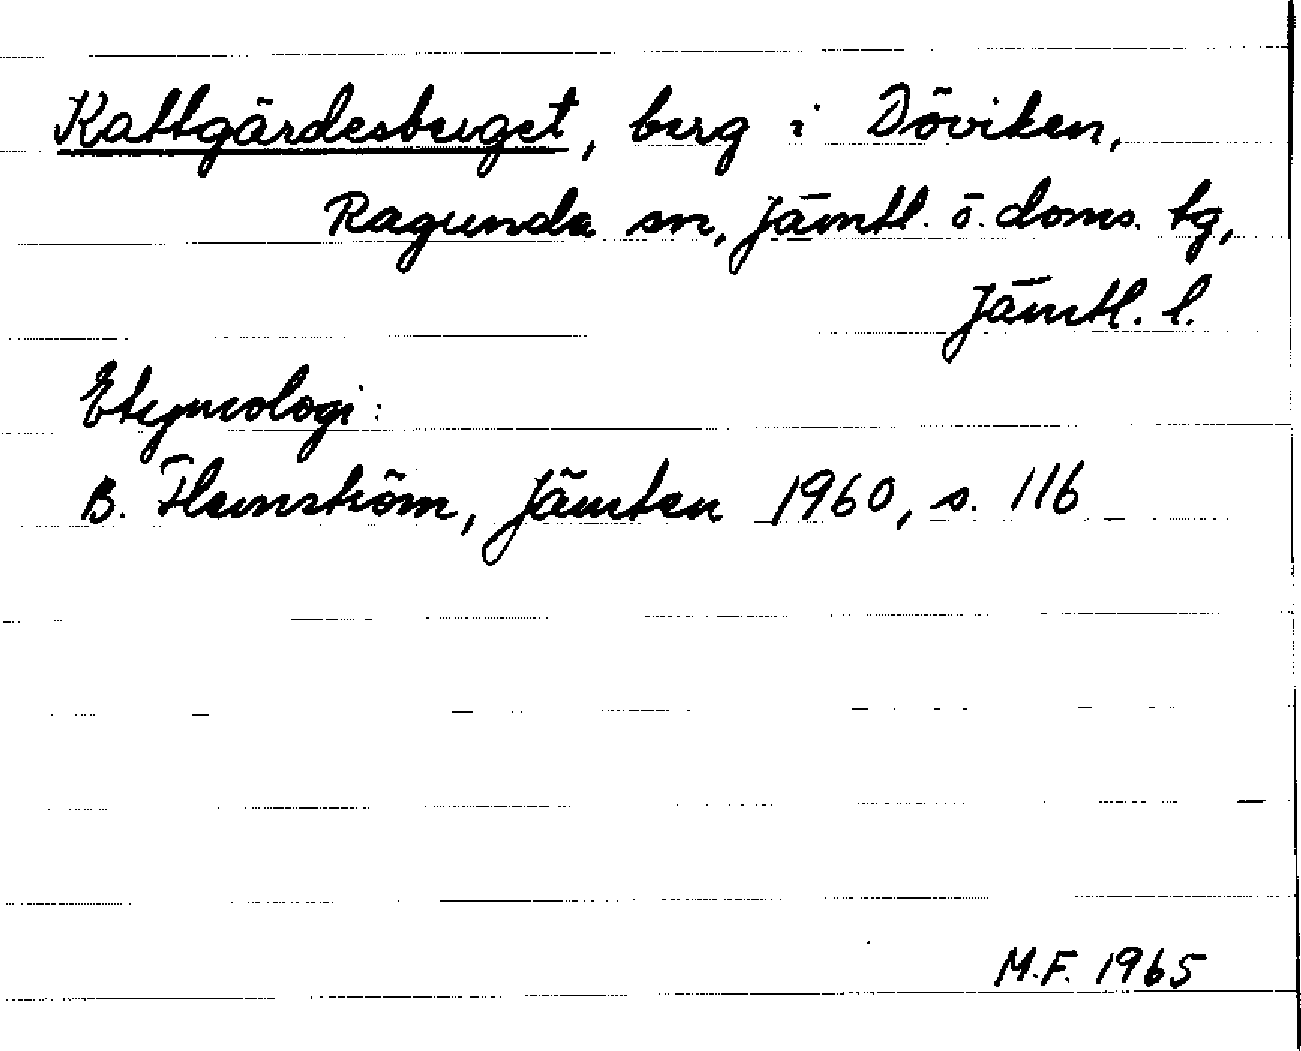 Kattgärdesberget, berg i Döviken,
Ragunda sn, Jämtl. ö. doms. tg,
Jämtl. l.
Etymologi:
B. Flemström, Jämten 1960, s. 116
M.F. 1965